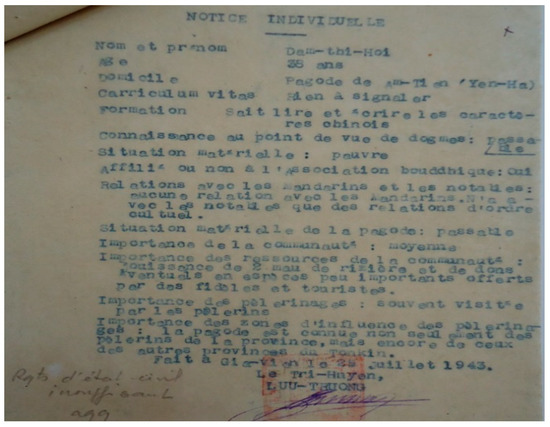 NOTICE INDIVIDUELLE
Nom et prénom Dam-thi-Hoi
Age 38 ans
Domicile Pagode de Am-Tien (Yen-Ha)
Carriculum vitas Rien à signaler
Formation Sait lire et écrire les caractè-
res chinois
Connaissance au point de vue de dogmes: passa-
ble
Situation matérielle : pauvre
Affilié ou non à l'Association bouddhique: Oui
Relations avec les Mandarins et les notables:
aucune relation avec les Mandarins. N'a a-
vec les notables que des relations d'ordre
cultuel.
Situation matérielle de la pagode: passable
Importance de la communauté : moyenne
Importance des ressources de la communauté :
Jouissance de 2 mau de rizière et de dons
éventuels en espèces peu importants offerts
par des fidèles et touristes.
Importance des pèlerinages : souvent visitée
par les pèlerins
Importance des zones d'influence des pèlerina-
ges : la pagode est connue non seulement des
pèlerins de la province, mais encore de ceux
des autres provinces du Tonkin.
Fait à Gia-Viên le 25 juillet 1943.
Le Tri-Huyen,
LUU-THUONG
d'état civil
insuffisant